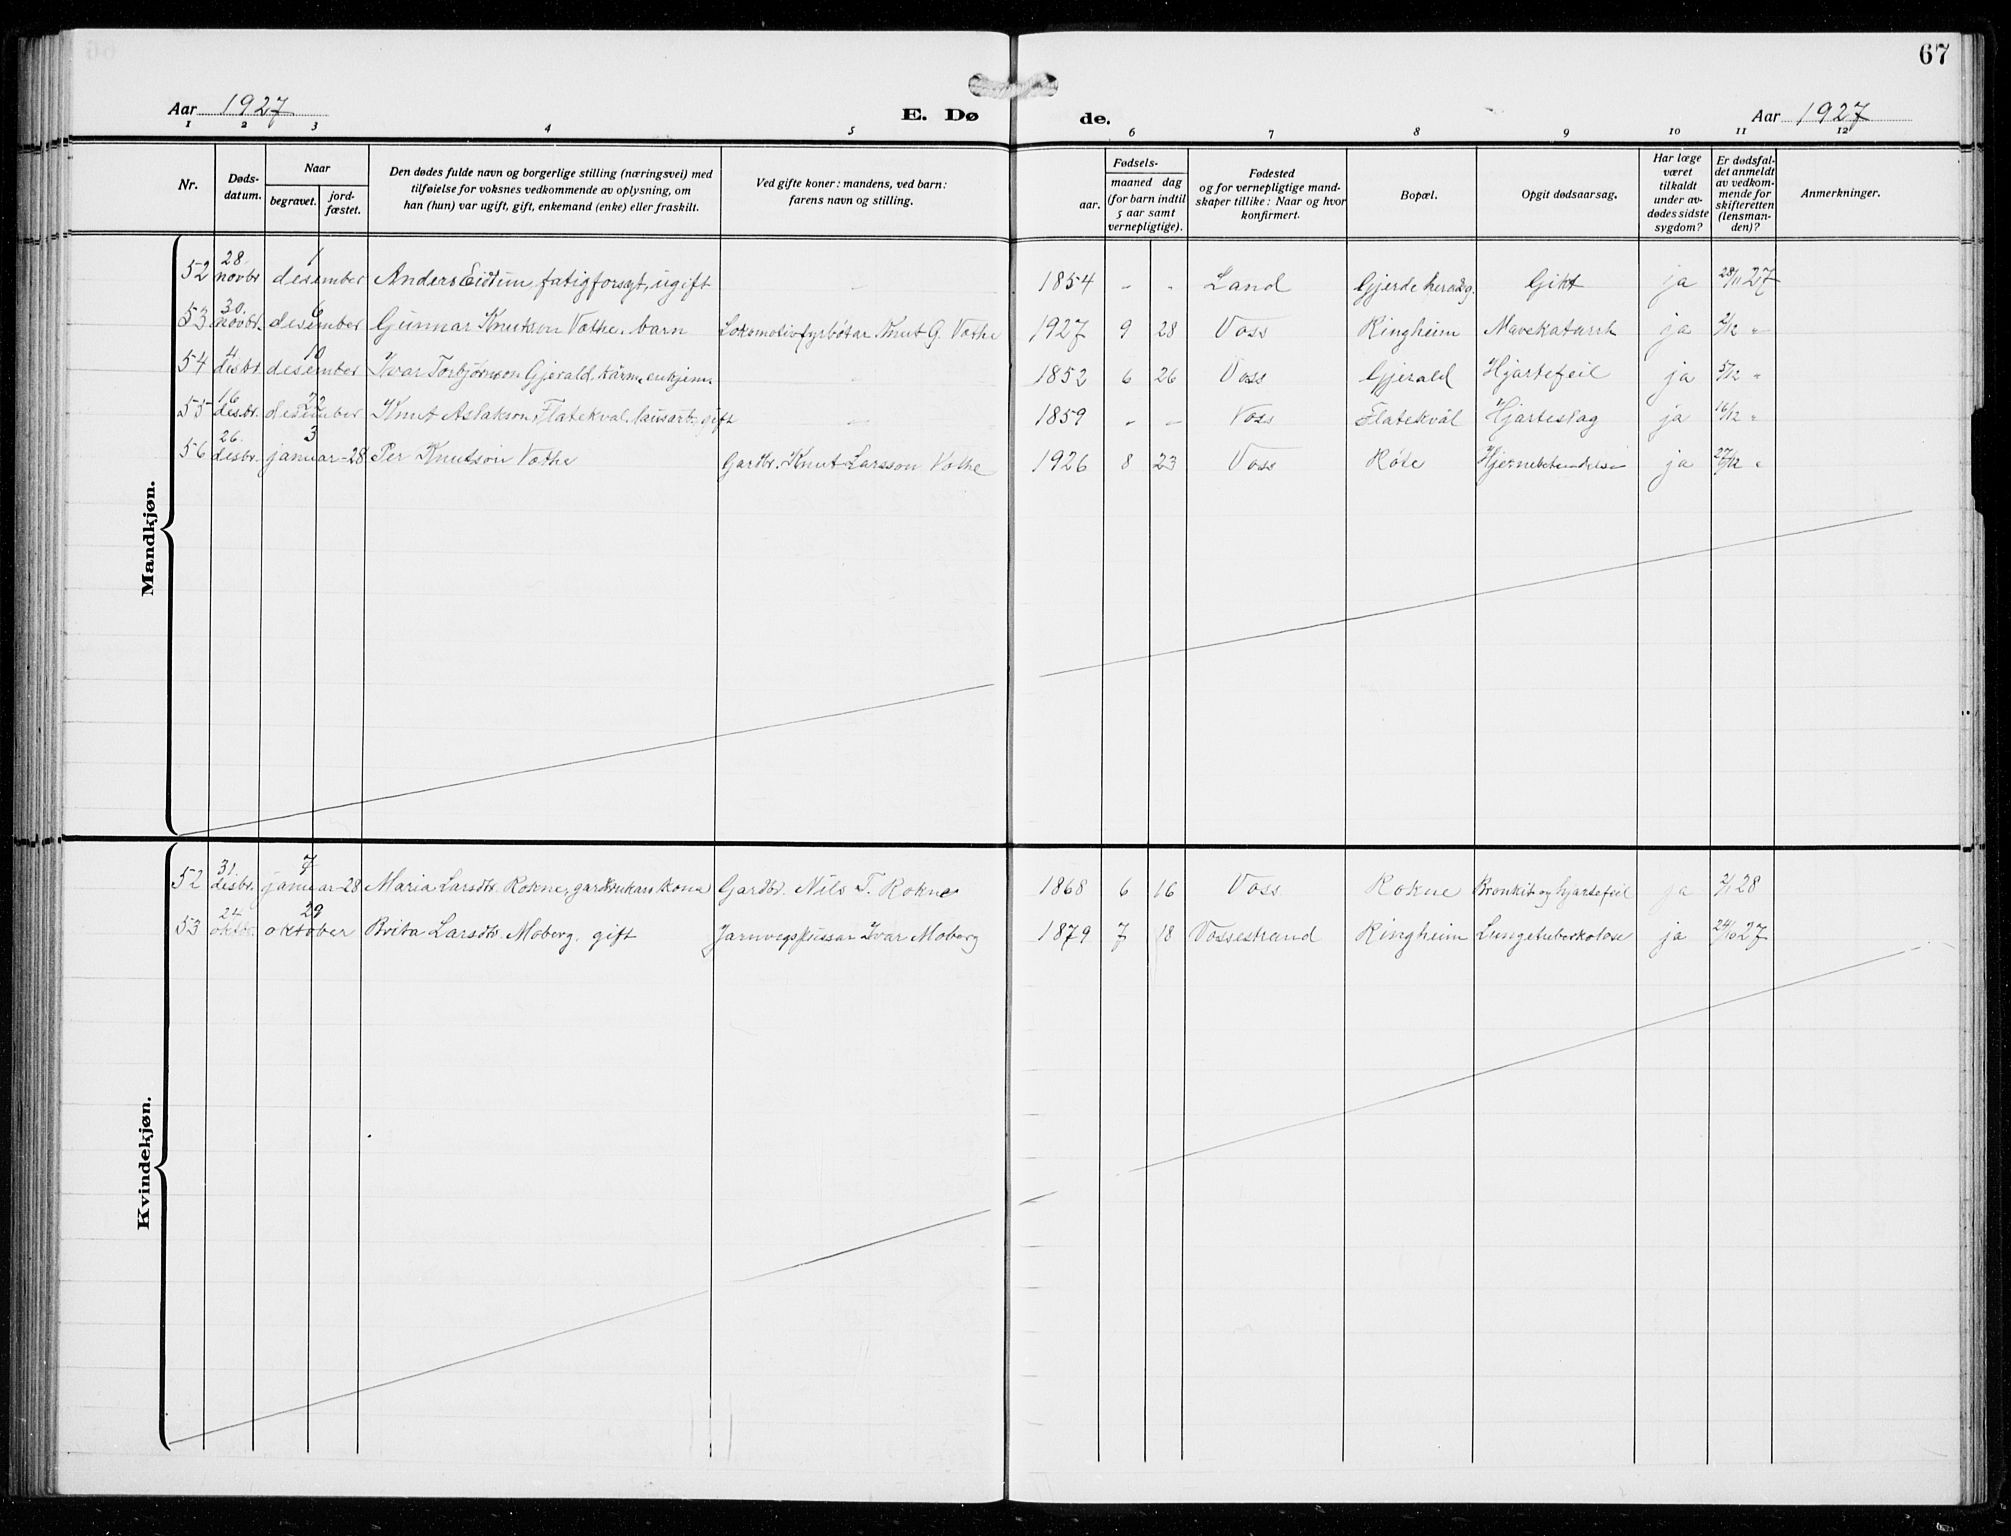 67
Aar 1927 E. Dø de. Aar 1927
1 2 3 4 5 6 7 8 9 10 11 12
Nr. Døds-datum. Naar begravet. jord-fæstet. Den dødes fulde navn og borgerlige stilling (næringsvei) med tilføielse for voksnes vedkommende av oplysning, om han (hun) var ugift, gift, enkemand (enke) eller fraskilt. Ved gifte koner: mandens, ved barn: farens navn og stilling. Fødsels- aar. maaned dag (for barn indtil 5 aar samt vernepligtige). Fødested og for vernepligtige mand-skaper tillike: Naar og hvor konfirmert. Bopæl. Opgit dødsaarsag. Har læge været tilkaldt under av-dødes sidste sygdom? Er dødsfal-det anmeldt av vedkom-mende for skifteretten (lensman-den)? Anmerkninger.
Mandkjøn.
52 28. novbr 1 desember Anders Eidtun, fatigforsgt, ugift — 1854 - - Land Gjerde heradsg. Gikt ja 28/11 27
53 30. novbr. 6 desember Gunnar Knutson Væthe, barn Lokomotivfyrbøtar Knut G. Væthe 1927 9 28 Voss Ringheim Mavekatarrh ja 2/12 "
54 4 desbr. 10 desember Ivar Torbjørnson Gjerald, kårm. enkjem. — 1852 6 26 Voss Gjerald Hjartefeil ja 5/12 "
55 16 desbr. 22 desember Knut Aslakson Flatekval, lausarb., gift — 1859 - - Voss Flatekvål Hjarteslag ja 16/12 "
56 26. desbr. 3 januar-28 Per Knutson Væthe Gardbr. Knut Larsson Vethe 1926 8 23 Voss Røte Hjernebetendelse ja 27/12 "
Kvindekjøn.
52 31. desbr. 7 januar-28 Maria Larsdtr. Rokne, gardbrukarkona Gardbr. Nils T. Rokne 1868 6 16 Voss Rokne Bronkit og hjartefeil ja 2/1 28
53 24 oktbr. 29 oktober Brita Larsdtr. Moberg, gift Jarnvegspussar Ivar Moberg 1879 7 18 Vossestrand Ringheim Lungetuberkolose ja 24/10 27